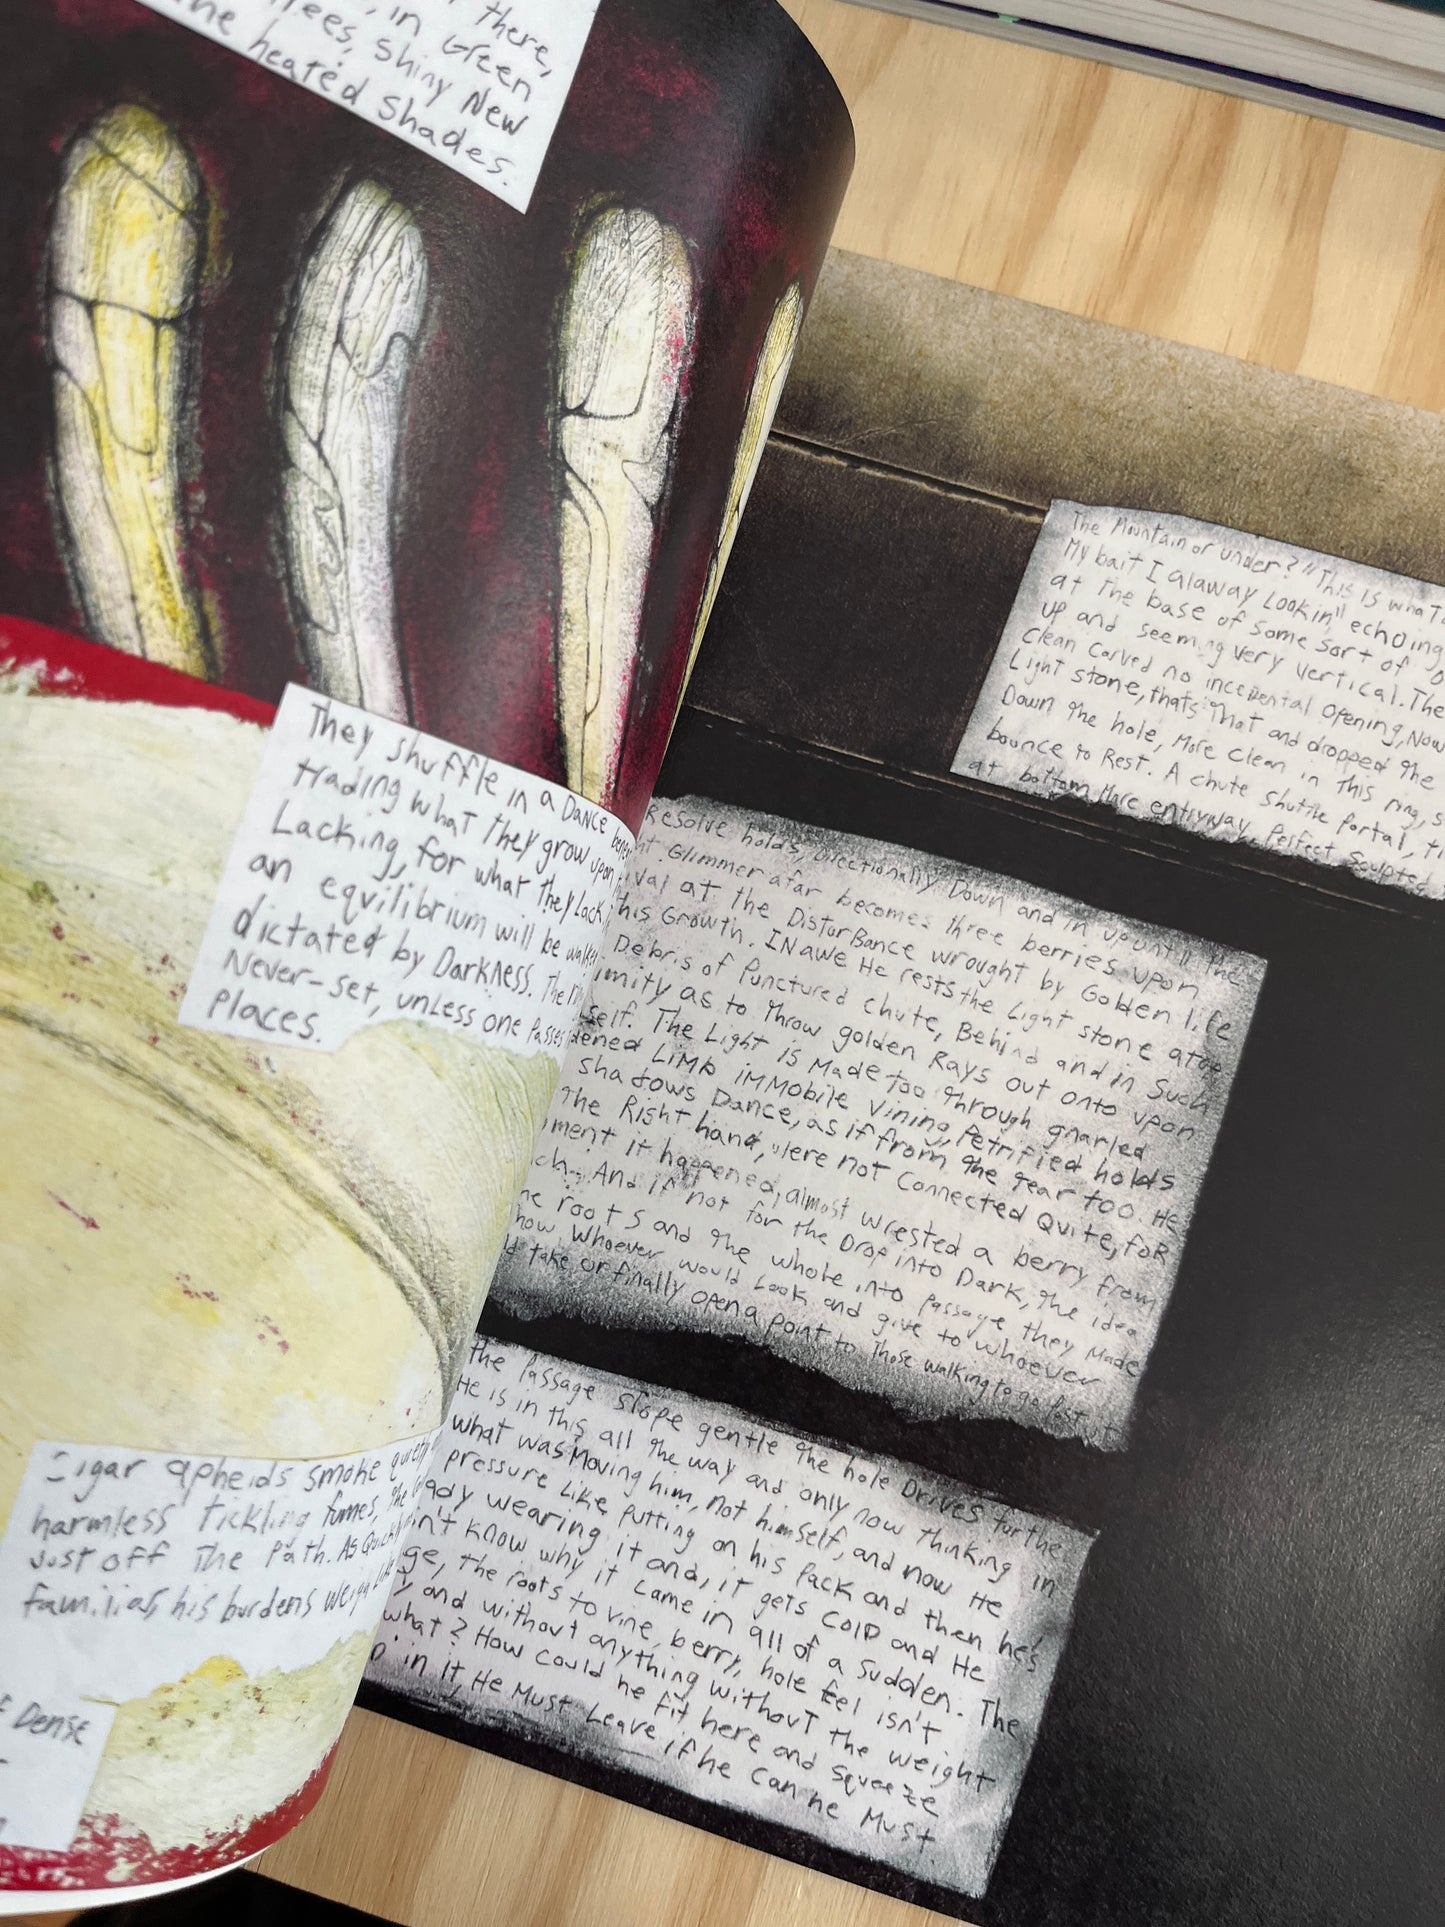 there,
in Green
rees, Shiny New
the heated Shades.
They shuffle in a Dance
trading what they grow upon
Lacking, for what they Lack
an equilibrium will be
dictated by Darkness. The
Never-set, unless one Passes
Places.
apheids smoke
harmless tickling fumes, the
just off The Path. As
familiar, his burdens
Dense
The Mountain or under? "This is what
My bait I alaway Lookin" echoing
at The base of some sort of
up and seeming very vertical. The
Clean Carved no incedental opening, Now
Light stone, thats that and dropped the
Down the hole, More Clean in this ring,
bounce to Rest. A chute shuttle Portal,
at bottom More entryway, Perfect Sculpted
Resolve holds, Directionally Down and in upuntil the
Glimmer afar becomes three berries upon
at the Disturbance wrought by Golden life
his Growth. IN awe He rests the Light stone atop
Debris of Punctured chute, Behind and in Such
as to Throw golden Rays out onto upon
self. The Light is Made too through gnarled
Limb immobile Vining, Petrified holds
shadows Dance, as if from the rear too. He
The Right hand, were not Connected Quite, foR
ment it happened, almost wrested a berry from
And if not for the Drop into Dark, the idea
roots and the whole into passage they Made
how Whoever would Look and give to whoever
take or finally open a point to Those walking to go Past
The Passage slope gentle the hole Drives further
He is in this all the way and only now thinking in
what was Moving him, not himself, and now He
pressure Like Putting on his Pack and then he's
wearing it and, it gets Cold and He
n't Know why it came in all of a Sudden. The
the roots to vine, berry, hole feel isn't
and without anything without the weight
what? How could he fit here and Squeeze
in it, He Must Leave, if he can he Must.